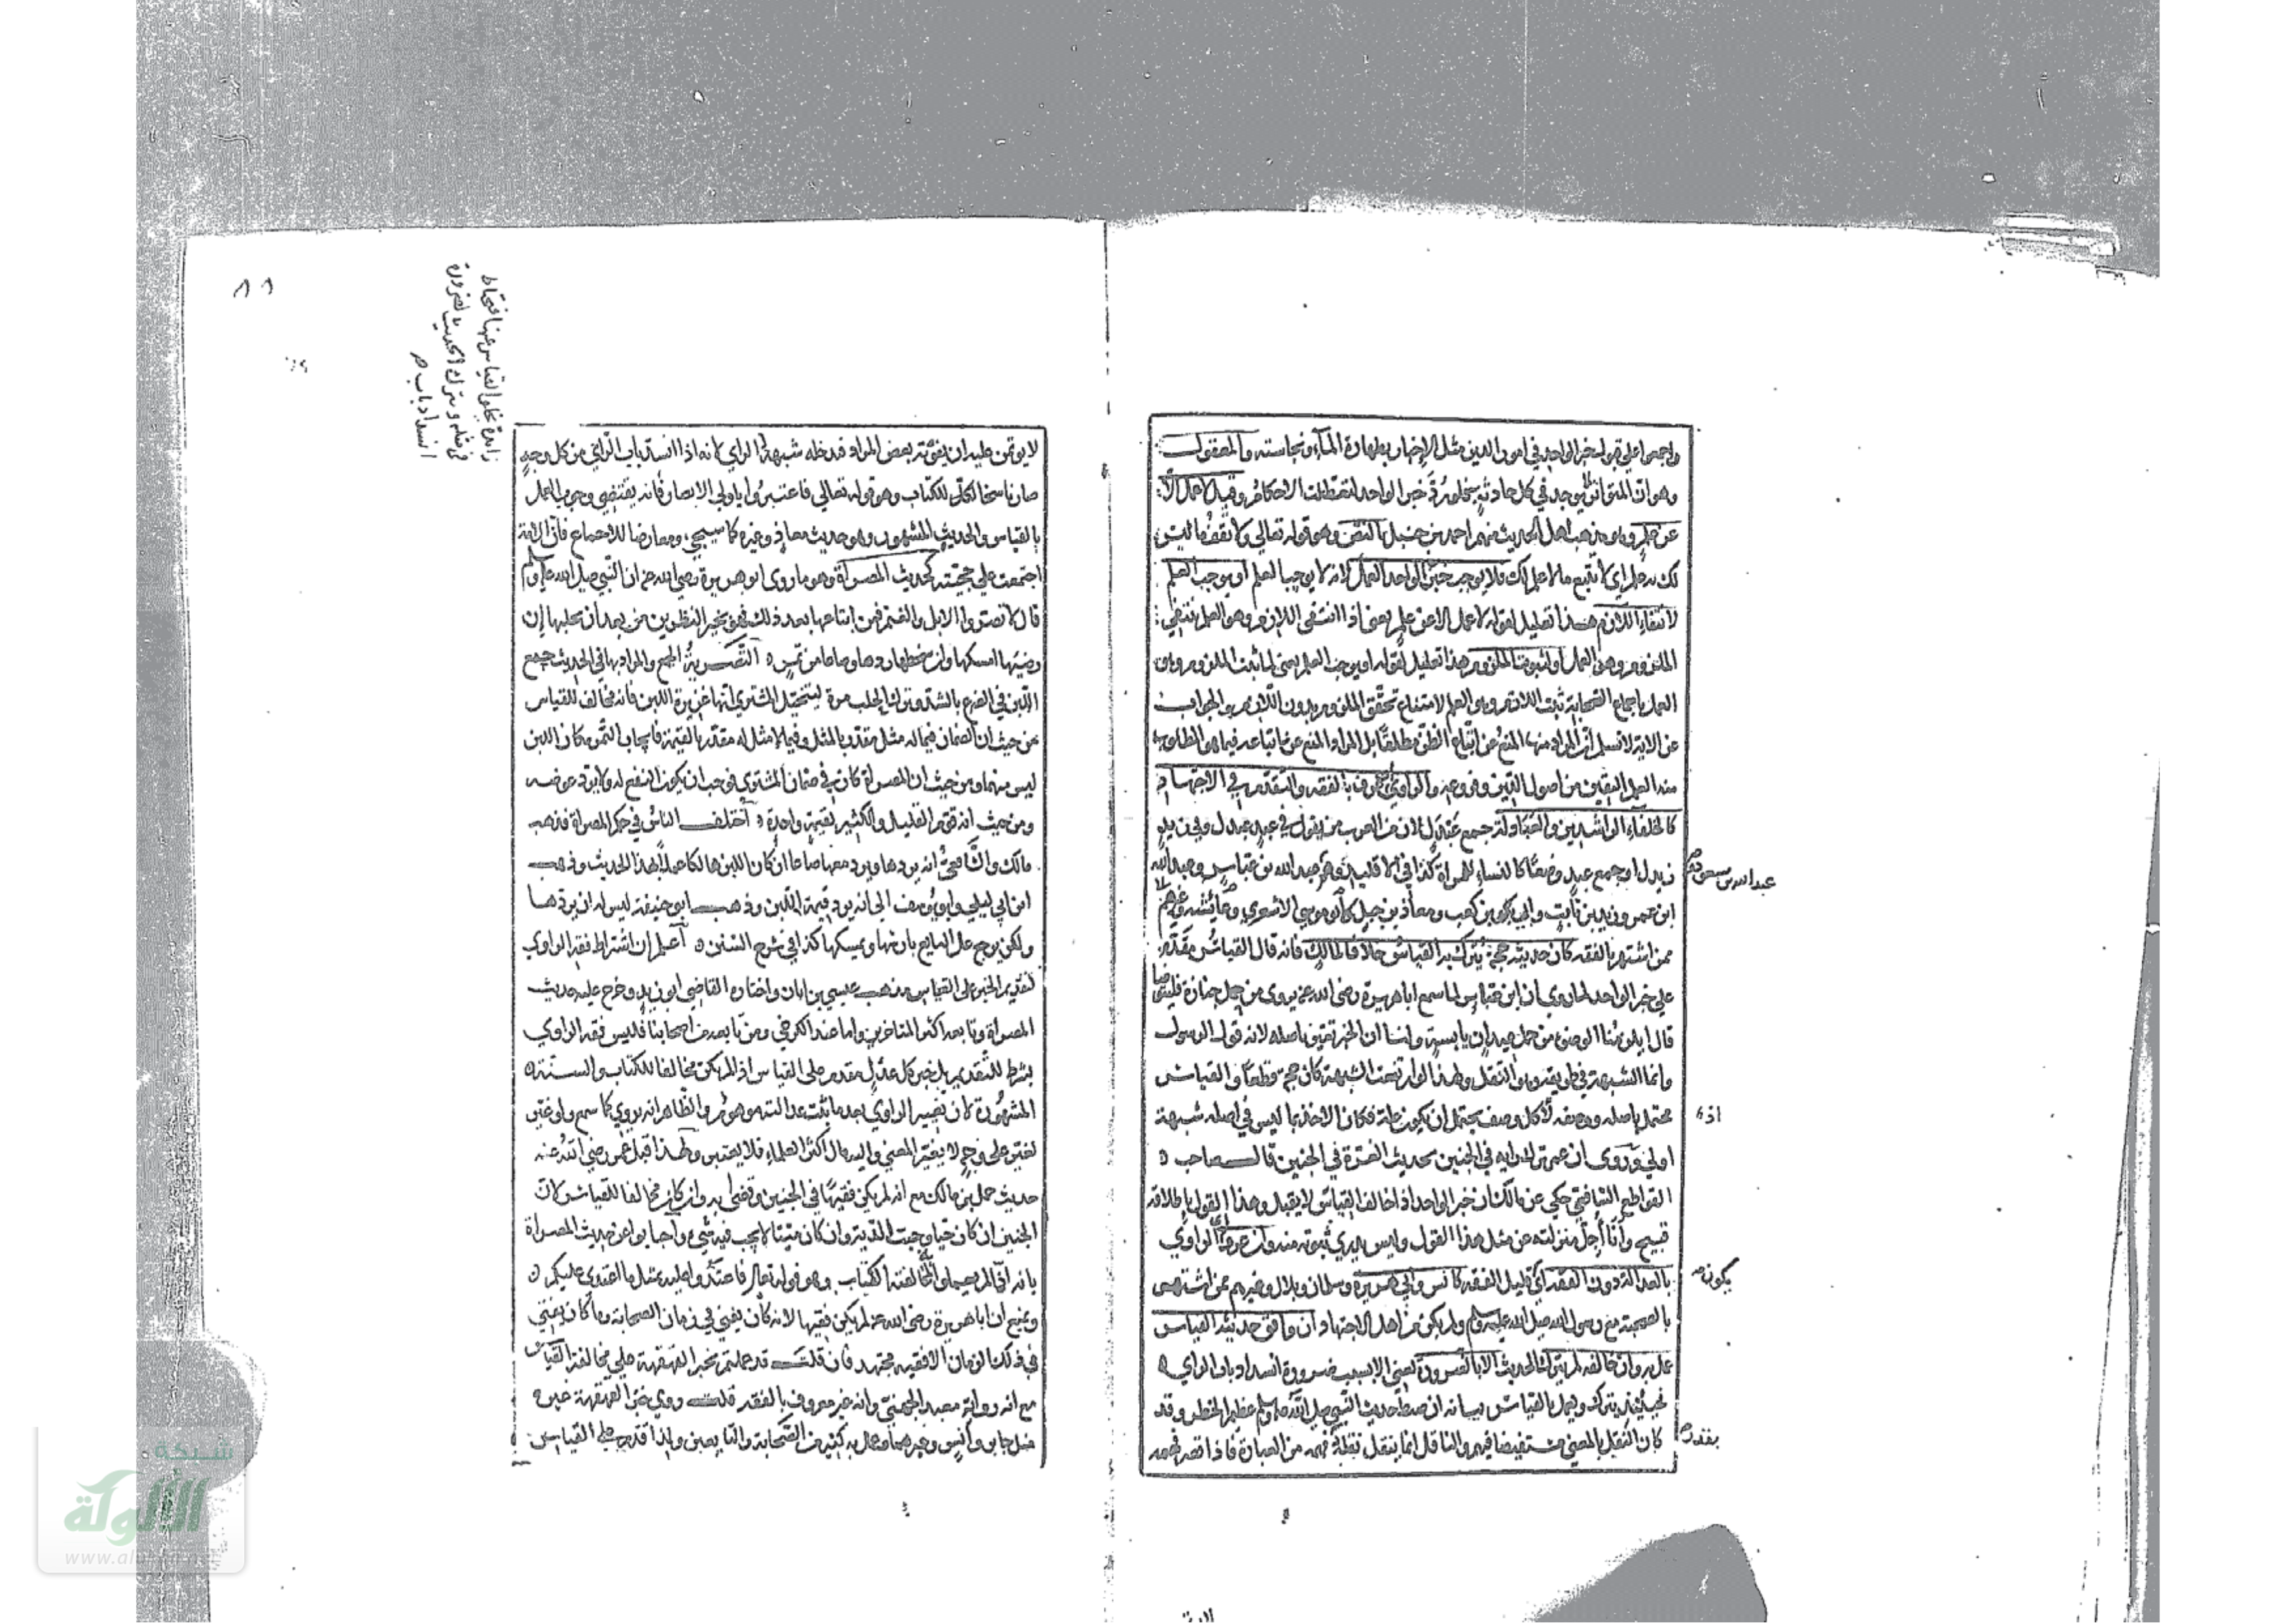 واجمعوا على قبول خبر الواحد في امور الدين مثل الاخبار بطهارة الماء ونجاسته والمعقول
وهو ان المتواتر لا يوجد في كل حادثة فلو رد خبر الواحد لتعطلت الاحكام وقيل لا عمل الا
عن علم وهو مذهب اهل الحديث منهم احمد بن حنبل بالنص وهو قوله تعالى ولا تقف ما ليس
لك به علم اي لا تتبع ما لا علم لك فلا يوجب خبر الواحد العمل لانه لا يوجب العلم او يوجب العلم
لانتفاء اللازم هذا تعليل لقوله لا عمل الا عن علم يعني اذا انتفى اللازم وهو العلم ينتفي
الملزوم وهو العمل او لثبوت الملزوم هذا تعليل لقوله او يوجب العلم يعني لما ثبت الملزوم وهو
العمل باجماع الصحابة ثبت اللازم وهو العلم لامتناع تحقق الملزوم بدون اللازم والجواب
عن الاية لا نسلم ان المراد منها المنع عن اتباع الظن مطلقا بل المراد المنع عن اتباعه فيما هو المطلوب
منه العلم اليقين من اصول الدين وفروعه والراوي ان عرف بالفقه والتقدم في الاجتهاد
كالخلفاء الراشدين والعبادلة جمع عبدل لان من العرب من يقول في عبد عبدل وفي زيد
زيدل او جمع عبد وضعا كالنساء للمرأة كذا في الاقليد وهم عبد الله بن عباس وعبد الله
عبد الله بن مسعود
ابن عمر وزيد بن ثابت وابي بن كعب ومعاذ بن جبل وابو موسى الاشعري وعائشة وغيرهم
ممن اشتهر بالفقه كان حديثه حجة يترك به القياس خلافا لمالك فانه قال القياس مقدم
على خبر الواحد لما روي ان ابن عباس لما سمع ابا هريرة رضي الله عنه يروي من حمل جنازة فليتوضأ
قال ايلزمنا الوضوء من حمل عيدان يابسة ولنا ان الخبر يقين باصله لانه قول الرسول
وانما الشبهة في طريقه وهو النقل ولهذا لو ارتفعت الشبهة كان حجة قطعا والقياس
محتمل باصله ووصفه لان كل وصف يحتمل ان يكون علة فكان الاخذ بما ليس في اصله شبهة
اذ
اولى وروى ان عمر ترك رايه في الجنين بحديث الغرة في الجنين قال صاحب
القواطع الشافعي حكي عن مالك ان خبر الواحد اذا خالف القياس لا يقبل وهذا القول باطلاقه
قبيح وانا اجل منزلته عن مثل هذا القول وليس يدري ثبوته منه وان عرف الراوي
بالعدالة دون الفقه اي قليل الفقه كانس وابي هريرة وسلمان وبلال وغيرهم ممن اشتهر
يكون
بالصحبة مع رسول الله صلى الله عليه وسلم ولم يكن من اهل الاجتهاد ان وافق حديثه القياس
عمل به وان خالفه لم يترك الحديث الا بالضرورة يعني الا بسبب ضرورة انسداد باب الراي
فحينئذ يترك ويعمل بالقياس بيانه ان ضبط حديث النبي صلى الله عليه وسلم عظيم الخطر وقد
كان النقل بالمعنى مستفيضا فيهم والناقل انما ينقل بقدر فهمه من العبارة فاذا قصر فهمه
بقدر
لا يؤمن عليه ان يفوته بعض المراد فدخله شبهة الراي لانه اذا انسد باب الراي من كل وجه
زايدة يخلو القياس عنها فيحتاط
في مثله ويترك الحديث لضرورة
انسداد باب
صار ناسخا للكتاب وهو قوله تعالى فاعتبروا يا اولي الابصار فانه يقتضي وجوب العمل
بالقياس والحديث المشهور وهو حديث معاذ وغيره كما سيجيء ومعارضا للاجماع فان الامة
اجتمعت على حجيته كحديث المصراة وهو ما روى ابو هريرة رضي الله عنه ان النبي صلى الله عليه وسلم
قال لا تصروا الابل والغنم فمن ابتاعها بعد ذلك فهو بخير النظرين من بعد ان يحلبها ان
رضيها امسكها وان سخطها ردها وصاعا من تمر التصرية الجمع والمراد بها في الحديث جمع
اللبن في الضرع بالشد وترك الحلب مدة ليتخيل المشتري انها غزيرة اللبن فانه مخالف للقياس
من حيث ان الضمان فيما له مثل مقدر بالمثل وفيما لا مثل له مقدر بالقيمة فايجاب التمر مكان اللبن
ليس منهما ومن حيث ان المصراة كان في ضمان المشتري فوجب ان يكون النفع له ولا يرد عوضه
ومن حيث انه قوم القليل والكثير بقيمة واحدة اختلف الناس في حكم المصراة فذهب
مالك والشافعي انه يردها ويرد معها صاعا ان كان اللبن هالكا عملا بهذا الحديث وذهب
ابن ابي ليلى وابو يوسف الى انه يرد قيمة اللبن وذهب ابو حنيفة ليس له ان يردها
ولكن يرجع على البايع بارشها ويمسكها كذا في شرح السنن اعلم ان اشتراط فقه الراوي
لتقديم الخبر على القياس مذهب عيسى بن ابان واختاره القاضي ابو زيد وخرج عليه حديث
المصراة وتابعه اكثر المتاخرين واما عند الكرخي ومن تابعه من اصحابنا فليس فقه الراوي
بشرط للتقديم بل خبر كل عدل مقدم على القياس اذا لم يكن مخالفا للكتاب والسنة
المشهورة لان تغيير الراوي بعد ما ثبت عدالته موهوم والظاهر انه يروي كما سمع ولو غير
لغير على وجه لا يغير المعنى واليه مال اكثر العلماء فلا يعتبر ولهذا قبل عمر رضي الله عنه
حديث حمل بن مالك مع انه لم يكن فقيها في الجنين وقضى به وان كان مخالفا للقياس لان
الجنين ان كان حيا وجبت الدية وان كان ميتا لا يجب فيه شيء واجابوا عن حديث المصراة
بانه انما لم يعملوا لمخالفته الكتاب وهو قوله تعالى فاعتدوا عليه بمثل ما اعتدى عليكم
ويمنع ان ابا هريرة رضي الله عنه لم يكن فقيها لانه كان يفتي في زمان الصحابة وما كان يفتي
في ذلك الزمان الا فقيه مجتهد فان قلت قد عملتم بخبر القهقهة على مخالفة القياس
مع انه رواية معبد الجهني وانه غير معروف بالفقه قلت روى خبر القهقهة غيره
مثل جابر وانس وغيرهما وعمل به كثير من الصحابة والتابعين ولذا قدم على القياس
شبكة
الألوكة